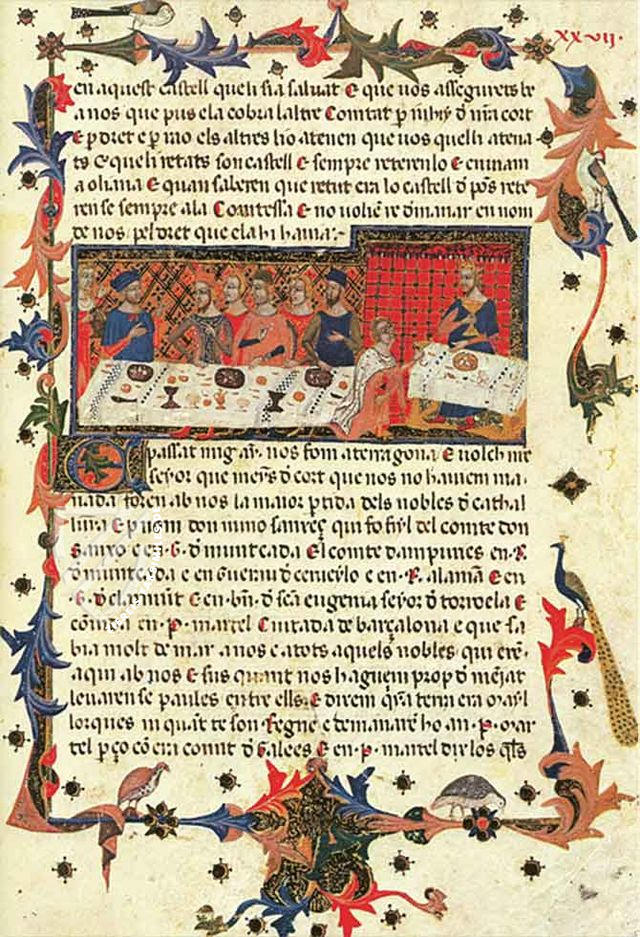 xxvij.
en aquest castell que li sia salvat E que uos assegurets be
a nos que pus ela cobra laltre Comtat p nos hi d nra cort
E p dret e p nio els altres ho atenen que uos quelli atena
ts e queli retats son castell E sempre reterenlo E enuiam
a oliana E quan saberen que retut era lo castell d pons rete
ren se sempre ala Comtessa E no uolien re dmanar en nom
de nos pel dret que ela hi hauia:
passat mig an. nos fom a terragona E uolch nre
seyor que meyns d cort que nos no hauem ma
nada foren ab nos la maior ptida dels nobles d cathal
lunya E p nom don nuno sanxeç qui fo fiyl del comte don
Sanxo e en .G. d muntcada El comte dampuries en .R.
d muntcada e en Guerau d cerueylo e en .R. alaman E en
.G. d claramunt E en .bn. d sca eugenia seyor d torroela E
era en .P. martel Ciutada de barçalona e que sa
bia molt de mar a nos e a tots aquels nobles qui eren
aqui ab nos E sus quant nos haguem prop d meniat
leuaren se paules entre ells. E dixem qna terra era mayl
lorques ni quant te son Regne e demanaren ho an .P. mar
tel p ço com era comit d Galees E en .P. martel dix los qls